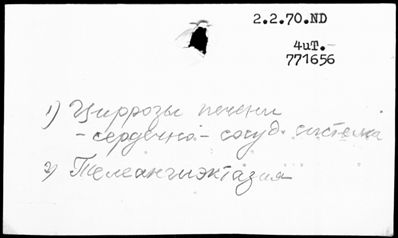 2.2.70.ND
4иT.-
771656
1) Циррозы печени
- сердечно - сосуд. система
2) Телеангиэктазия